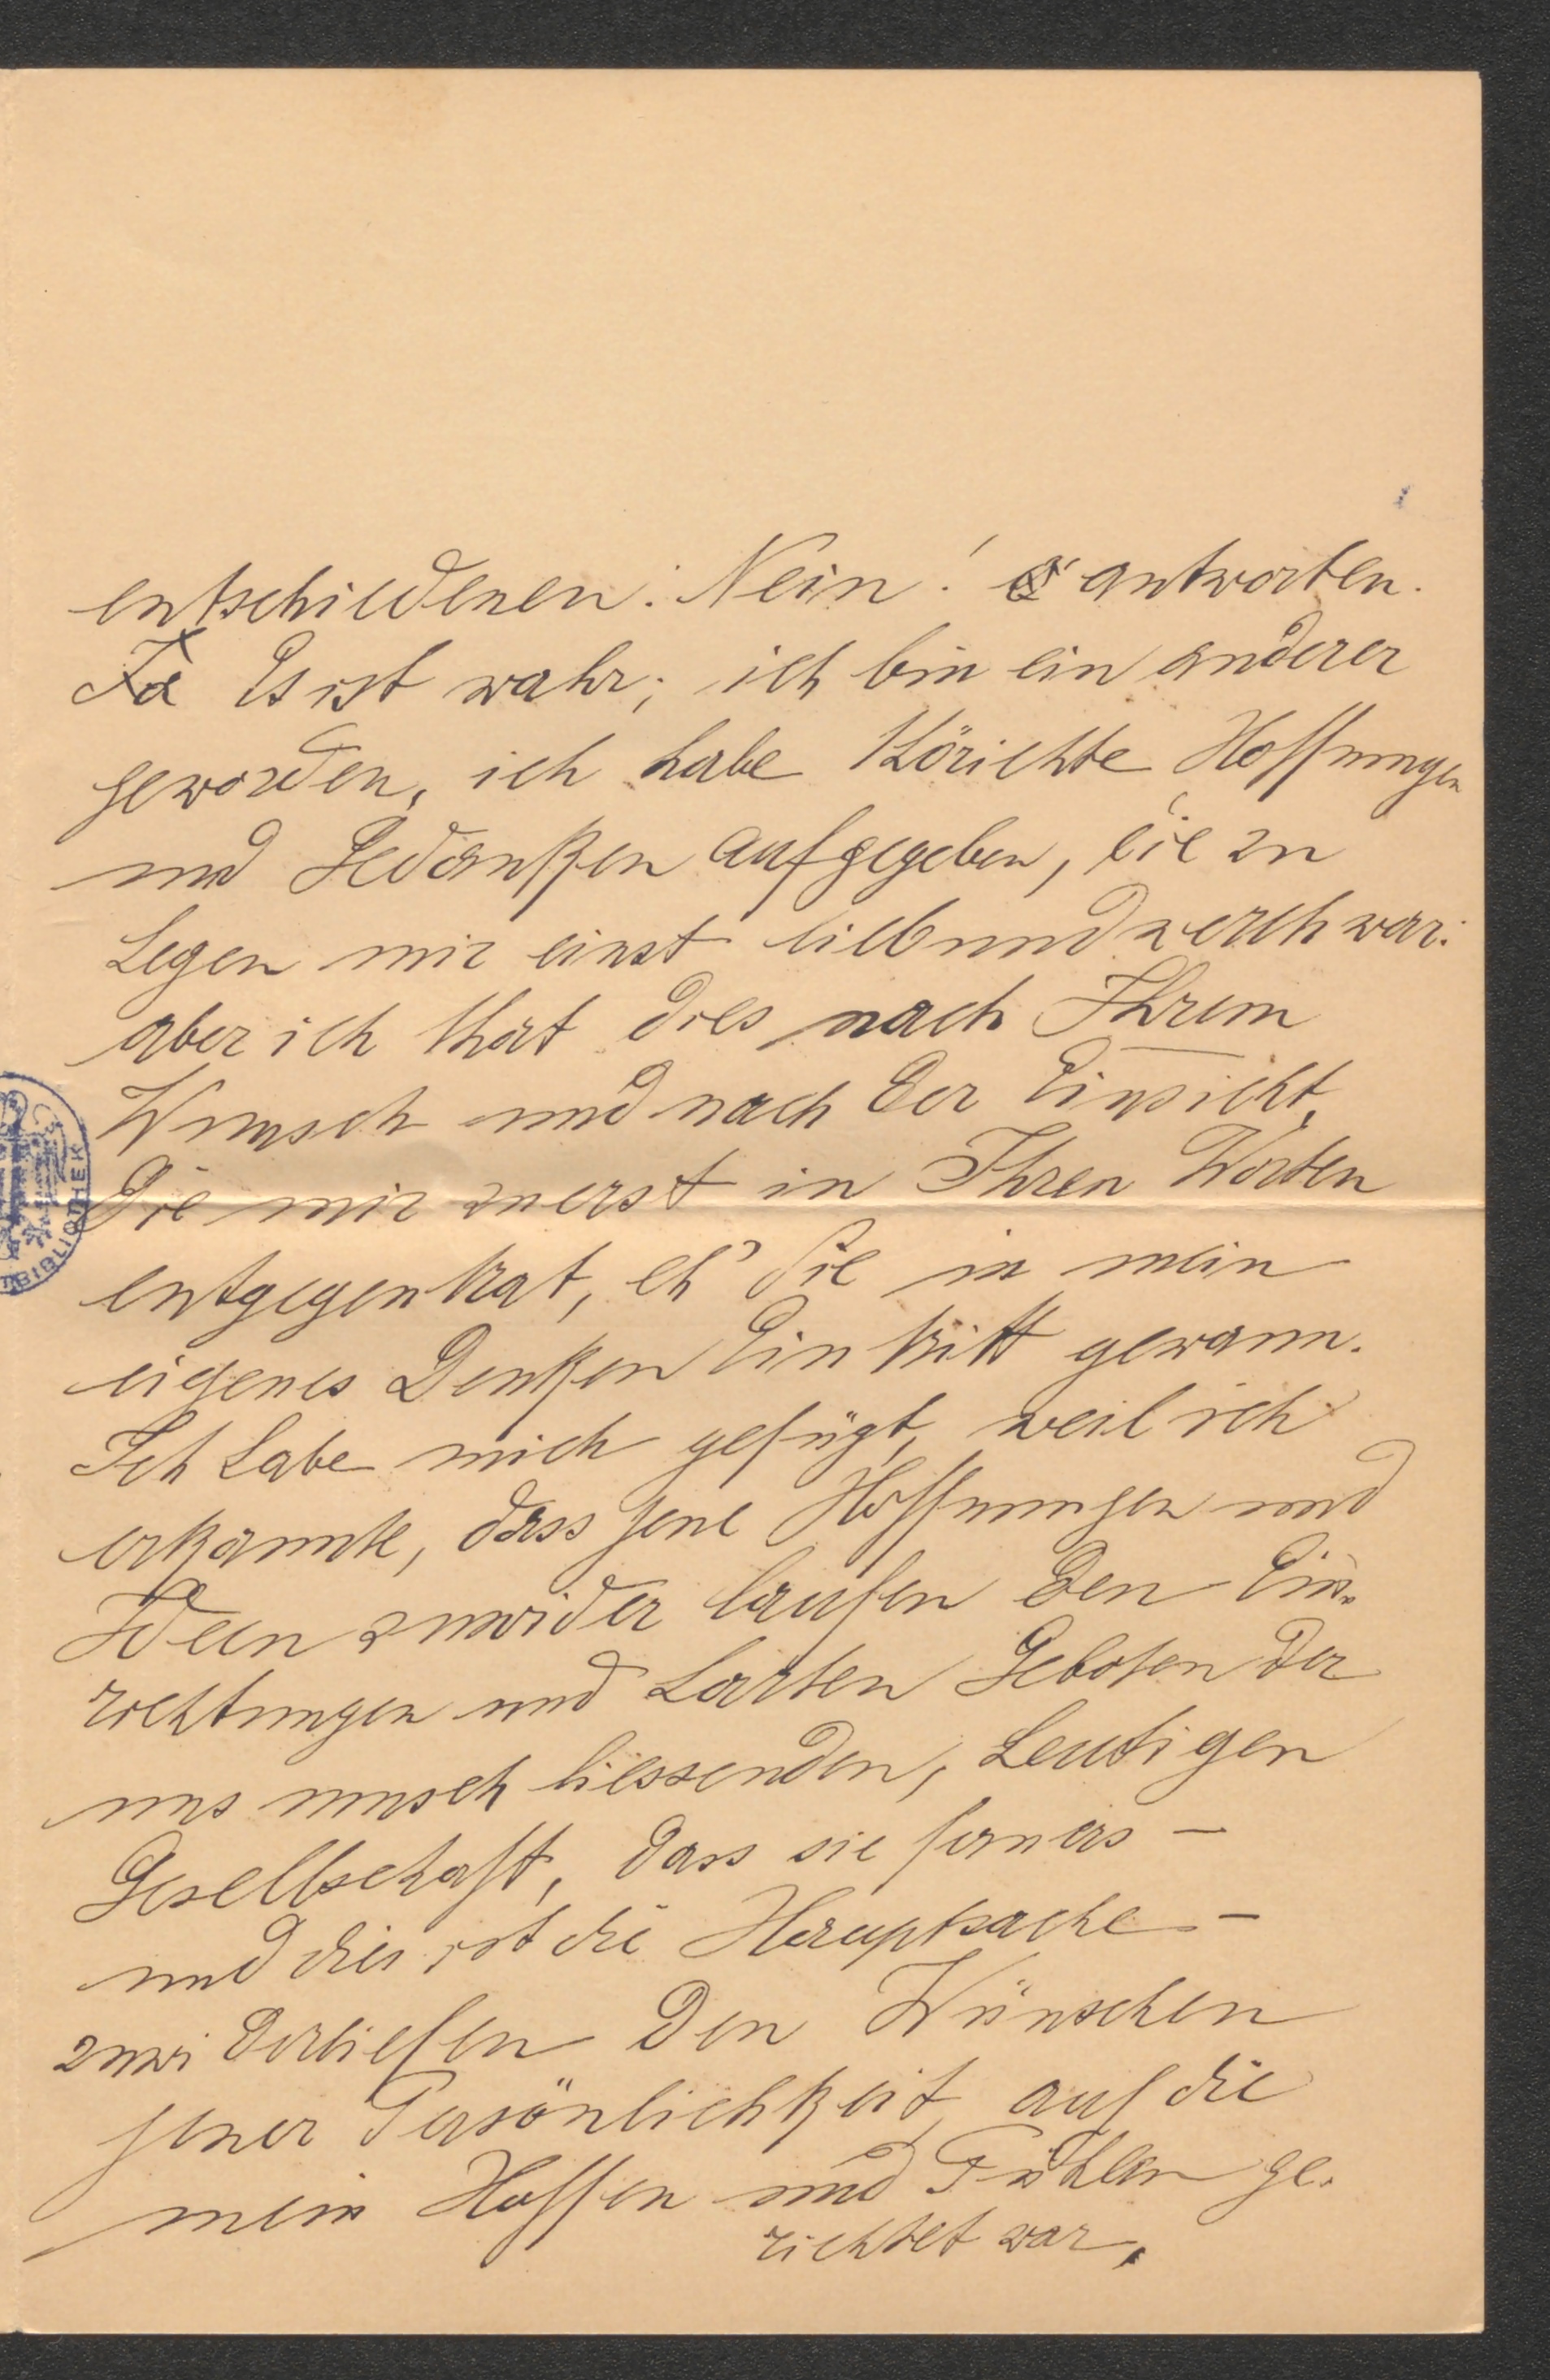 entschiedenen: Nein! antworten.
Ja Es ist wahr; ich bin ein anderer
geworden, ich habe thörichte Hoffnungen
und Gedanken aufgegeben, die zu
hegen mir einst lieb und werth war:
aber ich that dies nach Ihrem
Wunsch und nach der Einsicht,
die mir zuerst in Ihren Worten
entgegentrat, eh' sie in mein
eigenes Denken Eintritt gewann.
Ich habe mich gefügt, weil ich
erkannte, dass jene Hoffnungen und
Ideen zuwider laufen den Ein-
richtungen und harten Geboten der
uns umschliessenden, heutigen
Gesellschaft, dass sie ferners –
und dies ist die Hauptsache –
zuwiderliefen den Wünschen
jener Persönlichkeit, auf die
mein Hoffen und Fühlen ge-
richtet war,
BIBLIOTHEK